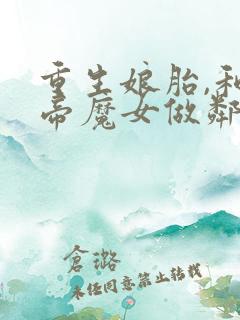 重生娘胎,和
帝魔女做鄰
倉璐
未任同意禁止转载